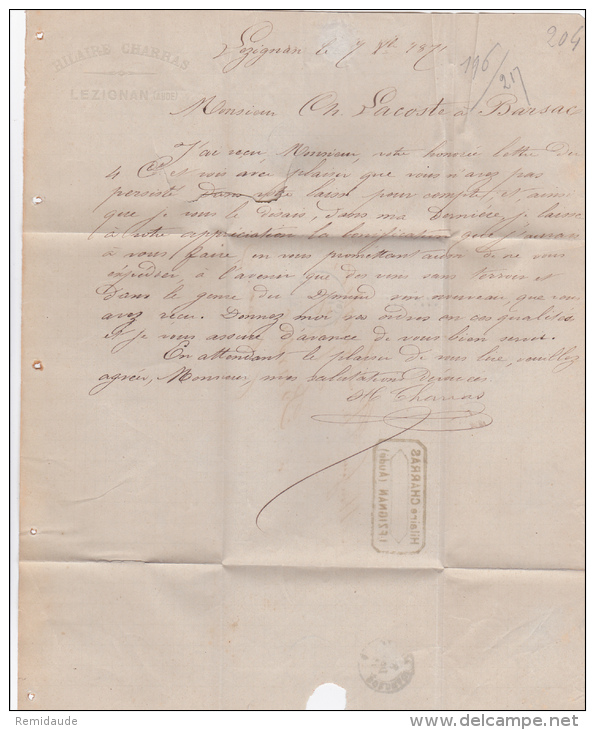 HILAIRE CHARRAS
LÉZIGNAN (AUDE)
204
116/217
Lezignan le 7 1871
Monsieur Ch. Lacoste à Barsac
J'ai reçu, Monsieur, votre honorée lettre du
4 Ct et vois avec plaisir que vous n'avez pas
persisté dans votre laissé pour compte et ainsi
que je vous le disais, dans ma dernière, je laisse
à votre appréciation la bonification que j'aurai
à vous faire, en vous promettant aussi de ne vous
expédier à l'avenir que des vins sans terroir et
dans le genre du vin nouveau, que vous
avez reçu. Donnez moi vos ordres en ces qualités
et je vous assure d'avance de vous bien servir.
En attendant le plaisir de vous lire, veuillez
agréer, Monsieur, mes salutations
H Charras
Hilaire CHARRAS
LÉZIGNAN (Aude)
Remidaude
www.delcampe.net